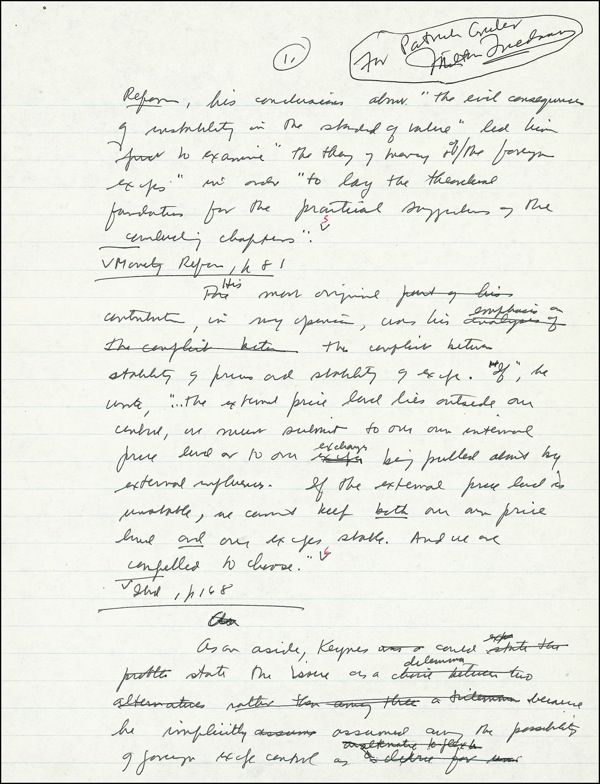 11
For Patrick
Milton Friedman
Reform, his conclusions about "the evil consequences
of instability in the standard of value" led him
first to examine "the theory of money & of the foreign
exchges" in order "to lay the theoretical
foundations for the practical suggestions of the
concluding chapters". 5
√ Monetary Reform, p 81
The His most original part of his
contribution, in my opinion, was his analysis of emphasis on
the conflict betwn the conflict between
stability of prices and stability of exchge. "If", he
wrote, "...the external price level lies outside our
control, we must submit to our own internal
price level or to our exchge exchange being pulled about by
external influences. If the external price level is
unstable, we cannot keep both our own price
level and our exchges stable. And we are
compelled to choose." 6
√ Ibid, p 168
As an aside, Keynes was a could state the
problem state the issue as a choice between two dilemma
alternatives rather than among three a trilemma because
he implicitly assumes assumed away the possibility
of foreign exchge control as